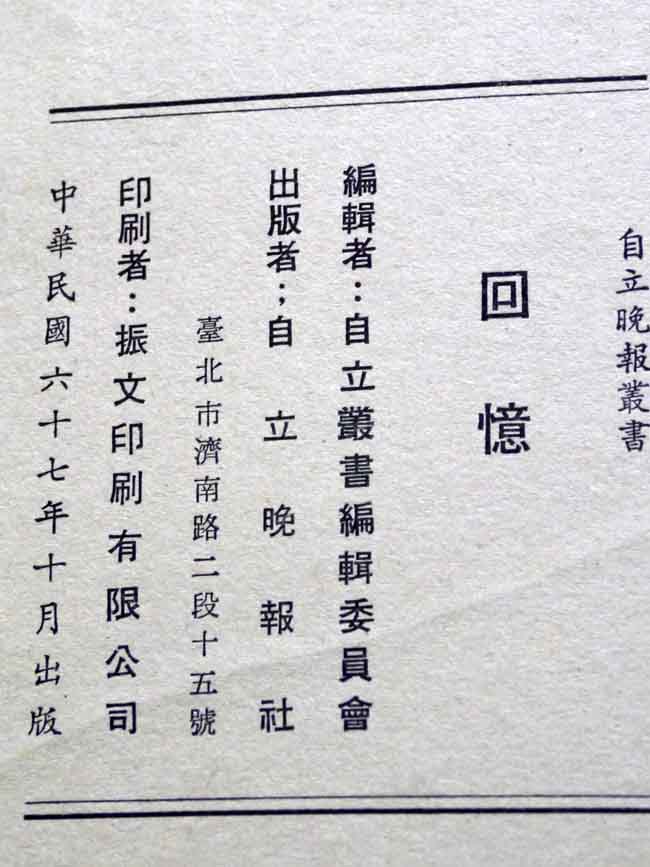 自立晚報叢書
回憶
編輯者：自立叢書編輯委員會
出版者；自立晚報社
臺北市濟南路二段十五號
印刷者：振文印刷有限公司
中華民國六十七年十月出版